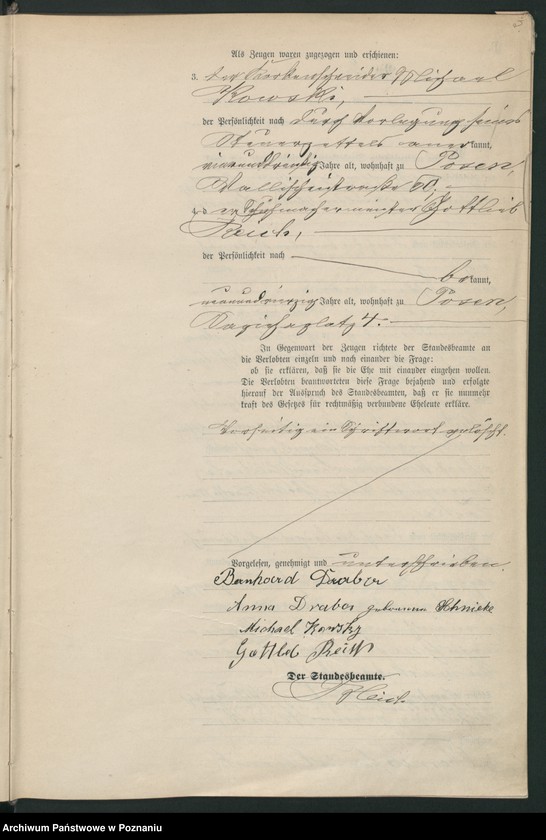 Als Zeugen waren zugezogen und erschienen:
3. der Michael
Kowski,
der Persönlichkeit nach durch Vorlegung seines
Steuerzettels anerkannt,
vierunddreißig Jahre alt, wohnhaft zu Posen,
Wallischeistraße
4. der Schuhmachermeister Gottlieb
der Persönlichkeit nach
bekannt,
Jahre alt, wohnhaft zu Posen,
4.
In Gegenwart der Zeugen richtete der Standesbeamte an
die Verlobten einzeln und nach einander die Frage:
ob sie erklären, daß sie die Ehe mit einander eingehen wollen.
Die Verlobten beantworteten diese Frage bejahend und erfolgte
hierauf der Ausspruch des Standesbeamten, daß er sie nunmehr
kraft des Gesetzes für rechtmäßig verbundene Eheleute erkläre.
Vorseitig ein Schriftwort gelöscht.
Vorgelesen, genehmigt und unterschrieben.
Bernhard Draber
Anna Draber geborene
Michael Kowsky
Der Standesbeamte.
Archiwum Państwowe w Poznaniu